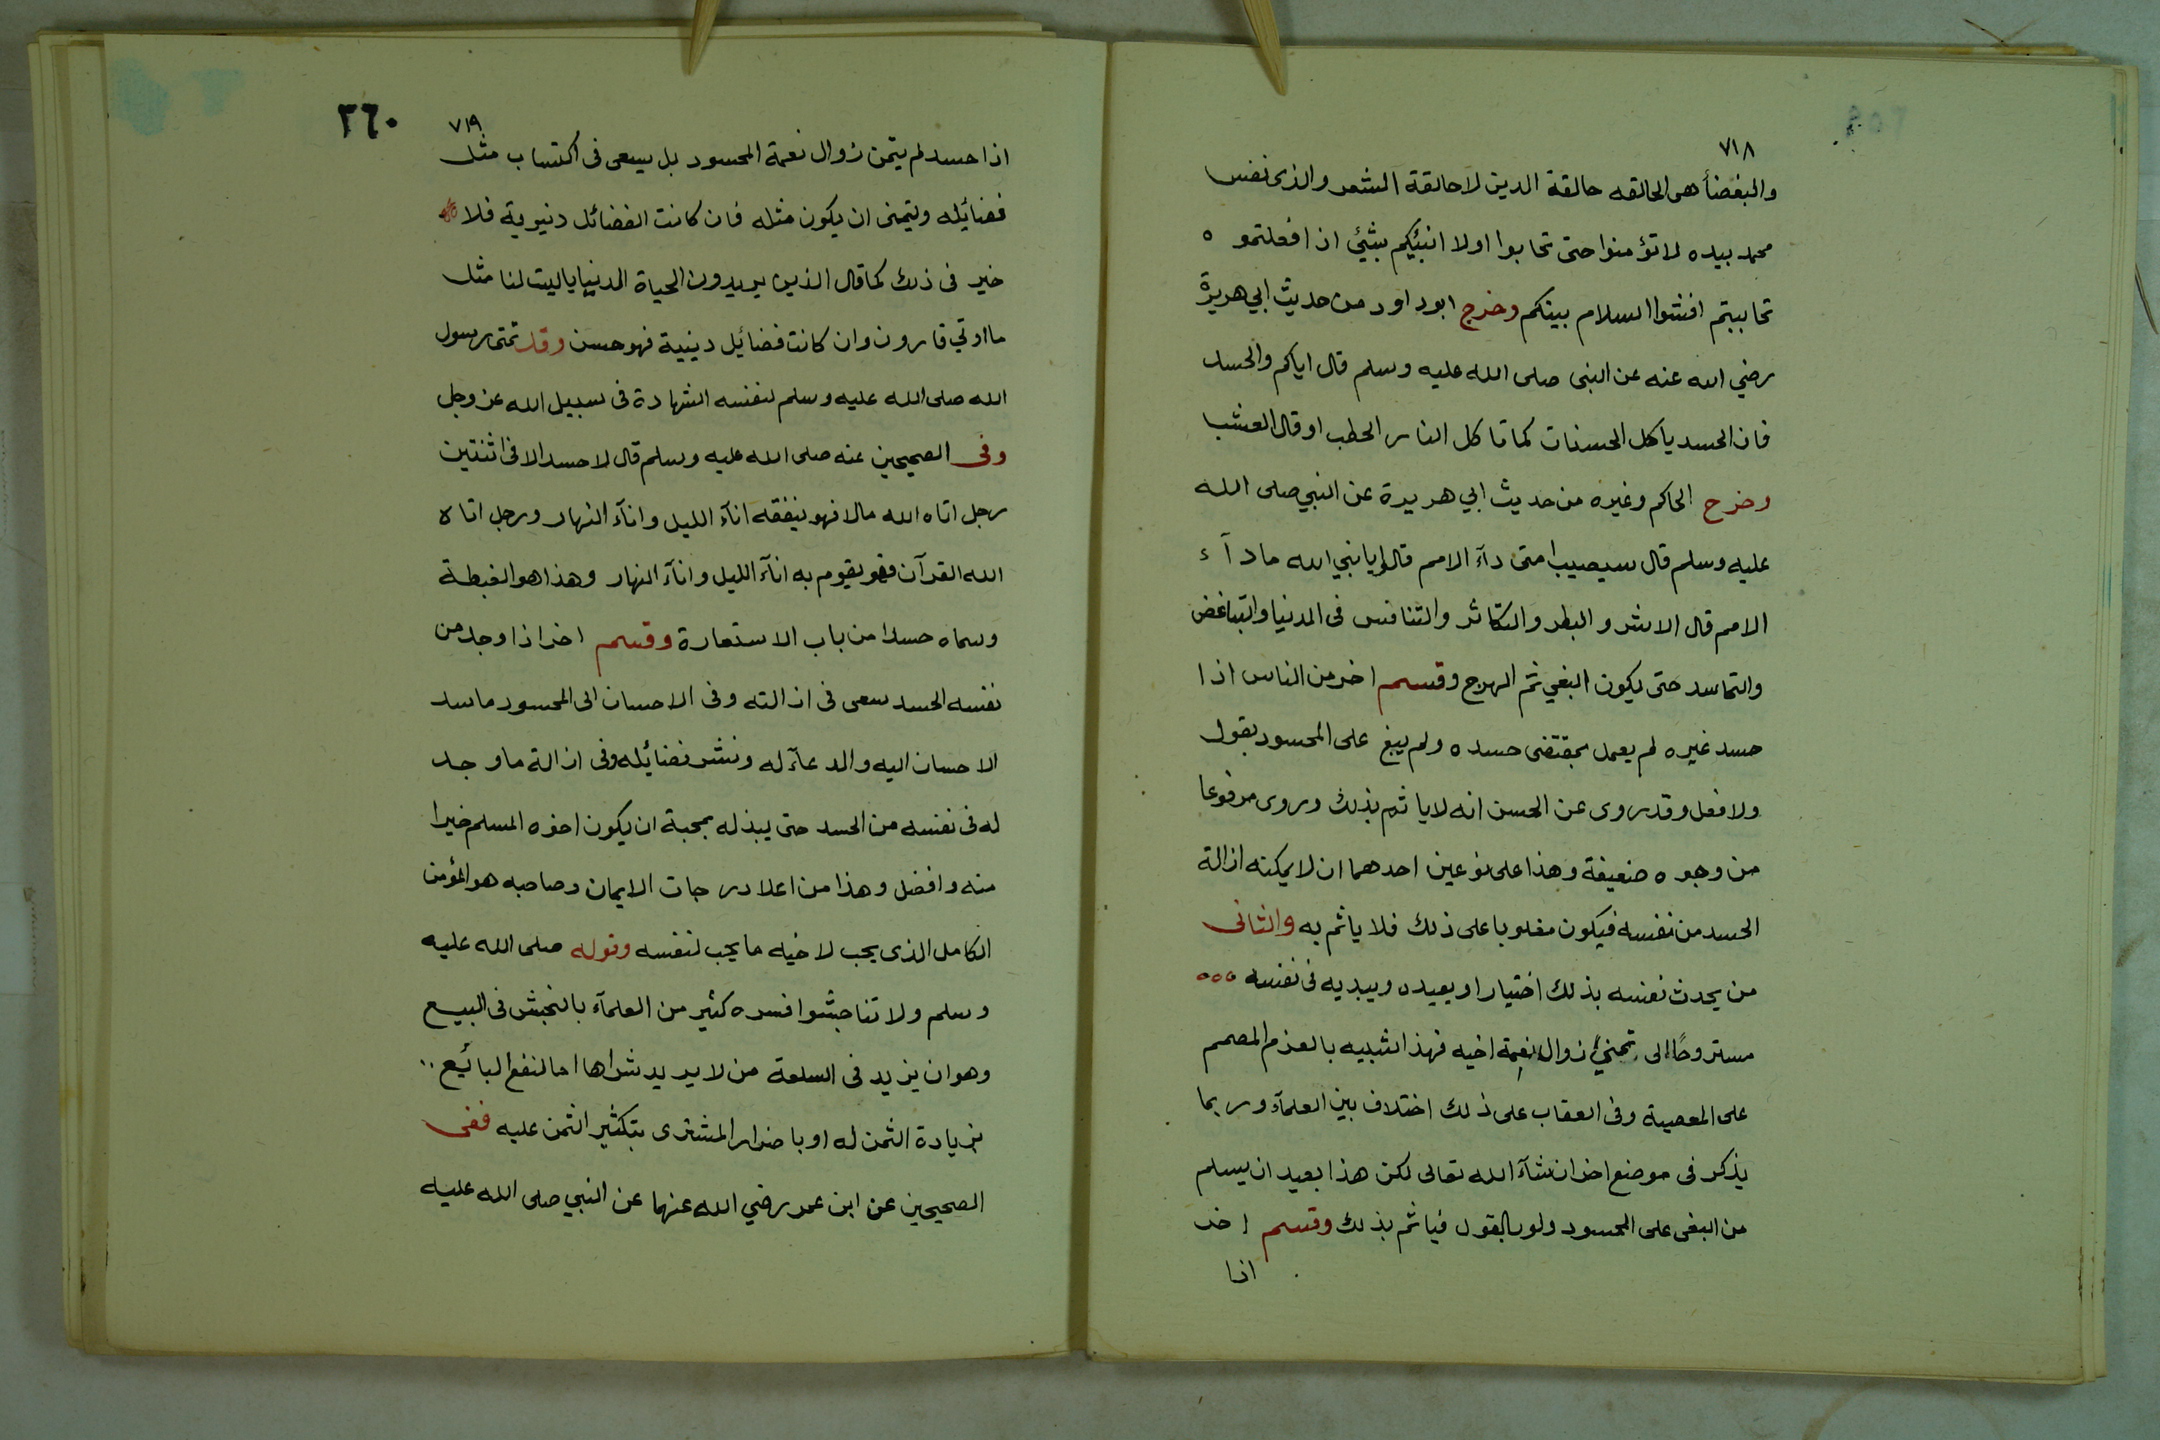 ٧١٨
والبغضأ هى الحالقه حالقة الدين لا حالقة الشعر والذى نفس
محمد بيده لا تؤمنوا حتى تحابوا اولا انبئكم بشيئ اذا فعلتموه
تحاببتم افشوا السلام بينكم وخرج ابوداود من حديث ابي هريرة
رضي الله عنه عن النبى صلى الله عليه وسلم قال اياكم والحسد
فان الحسد ياكل الحسنات كما تاكل النار الحطب او قال العشب
وخرج الحاكم وغيره من حديث ابي هريرة عن النبي صلى الله
عليه وسلم قال سيصيب امتى دآء الامم قالوا يانبي الله ما دآء
الامم قال الاشر و البطر والتكاثر والتنافس فى الدنيا والتباغض
والتحاسد حتى يكون البغي ثم الهرج وقسم اخر من الناس اذا
حسد غيره لم يعمل بمقتضى حسده ولم يبغ على المحسود بقول
ولا فعل وقد روى عن الحسن انه لا ياثم بذلك وروى مرفوعا
من وجوه ضعيفة وهذا على نوعين احدهما ان لا يمكنه ازالة
الحسد من نفسه فيكون مغلوبا على ذلك فلا ياثم به والثانى
من يحدث نفسه بذلك اختيارا ويعيده ويبديه فى نفسه
مستروحًا الى تمني زوال نعمة اخيه فهذا شبيه بالعزم المصمم
على المعصية وفى العقاب على ذلك اختلاف بين العلمآء وربما
يذكر فى موضع اخر ان شآء الله تعالى لكن هذا بعيد ان يسلم
من البغى على المحسود ولو بالقول فياثم بذلك وقسم اخر
اذا
٣٦٠
٧١٩
اذا حسد لم يتمن زوال نعمة المحسود بل يسعى فى اكتساب مثل
فضائيله ويتمنى ان يكون مثله فان كانت الفضائل دنيوية فلا
خير فى ذلك كما قال الذين يريدون الحياة الدنيا ياليت لنا مثل
ما اوتي قارون وان كانت فضائيل دينية فهو حسن وقد تمنى رسول
الله صلى الله عليه وسلم لنفسه الشهادة فى سبيل الله عز وجل
وفى الصحيحين عنه صلى الله عليه وسلم قال لا حسد الا فى اثنتين
رجل اتاه الله مالا فهو ينفقه انآء الليل وانآء النهار ورجل اتاه
الله القرآن فهو يقوم به انآء الليل وانآء النهار وهذا هو الغبطة
وسماه حسدا من باب الاستعارة وقسم اخر اذا وجد من
نفسه الحسد سعى فى ازالته وفى الاحسان الى المحسود ماسد
الاحسان اليه والدعآء له ونشر فضائيله وفى ازالة ما وجد
له فى نفسه من الحسد حتى يبذله بمحبة ان يكون اخوه المسلم خيرا
منه وافضل وهذا من اعلا درجات الايمان وصاحبه هو المؤمن
الكامل الذى يحب لاخيه ما يحب لنفسه وقوله صلى الله عليه
وسلم ولا تناجشوا فسره كثير من العلمآء بالنجش فى البيع
وهو ان يزيد فى السلعة من لا يريد شراها اما لنفع البائيع
بزيادة الثمن له او باضرار المشترى بتكثير الثمن عليه ففى
الصحيحين عن ابن عمر رضي الله عنهما عن النبي صلى الله عليه